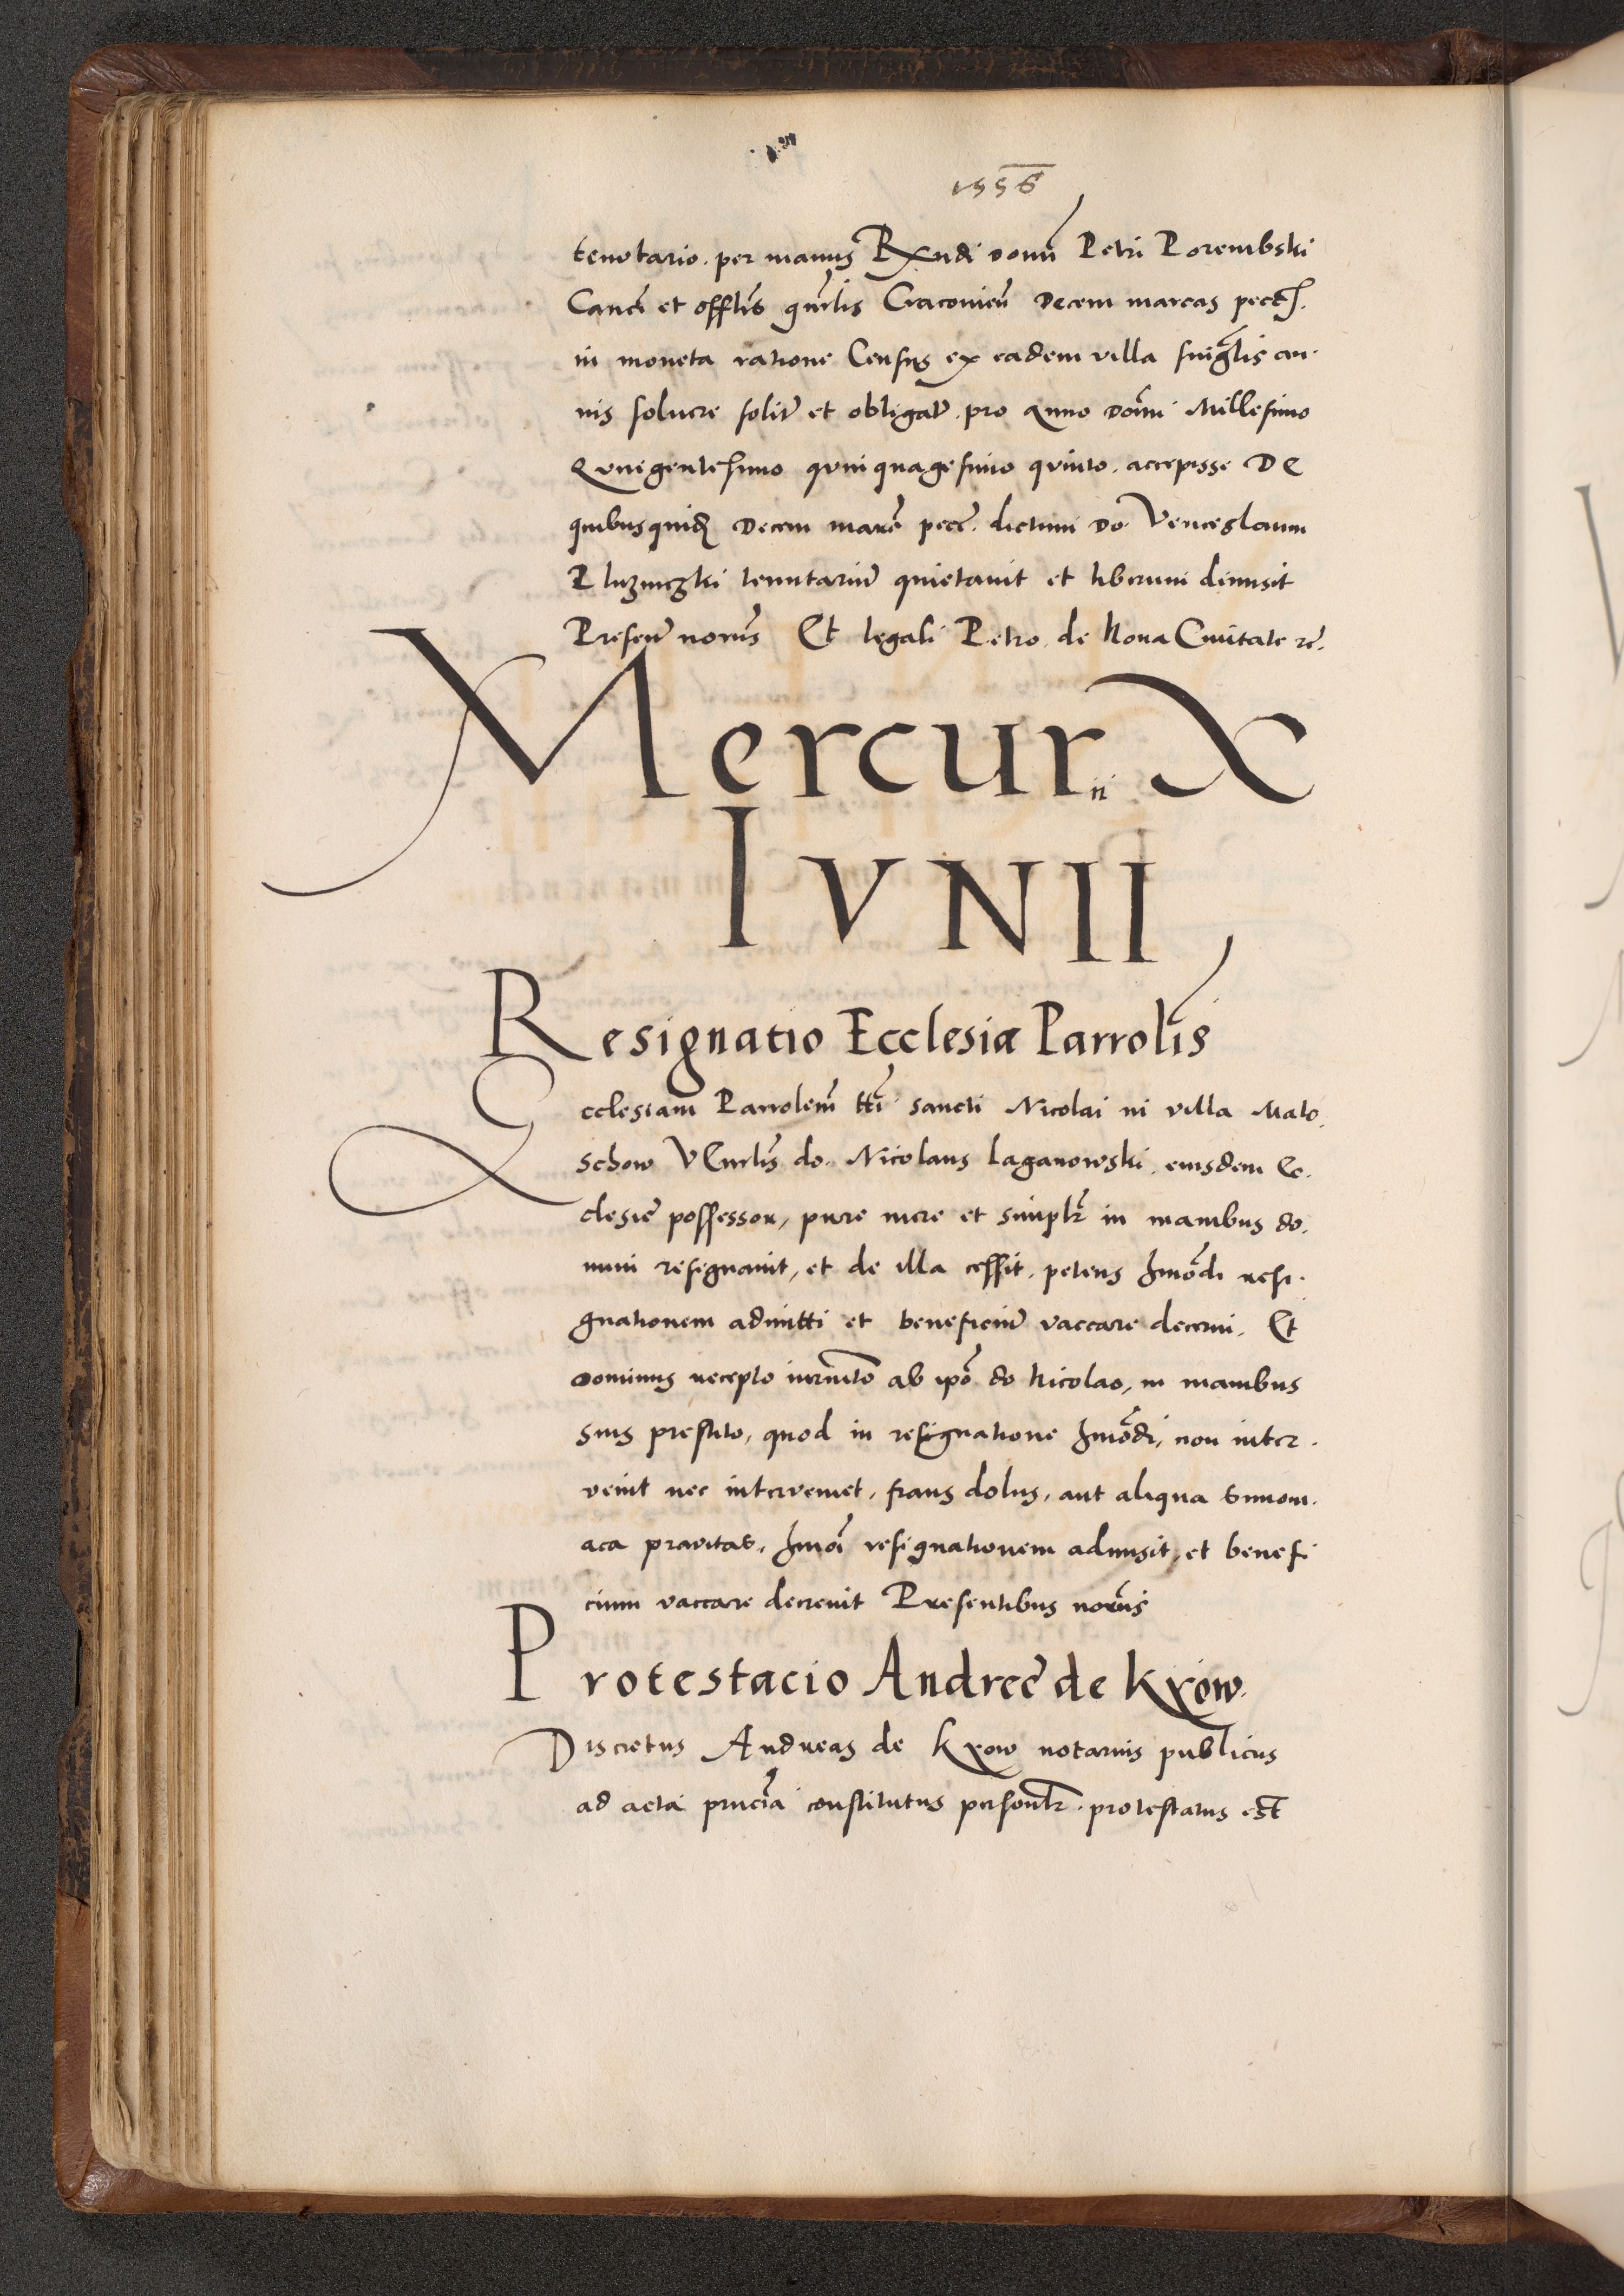 1556
tenotario. per manus Rxndi domī Petri Porembski
Canci et offlis gnrlis Cracovien Decem marcas pecc.
in moneta ratione Census ex eadem villa singlis an-
nis solvere solit et obligat. pro Anno domi Millesimo
Quingentesimo quinquagesimo quinto. accepisse De
quibusquid Decem marc pecc. dictum do. Venceslaum
Pluzinczki tenutariu quietavit et liberum dimisit
Presen noriis Et legali Petro. de Nova Civitate re.
Mercurii X
IVNII
Resignatio Ecclesiæ Parrolis
Ecclesiam Parrolem tti sancti Nicolai in villa Malo.
schow VEnrlis do. Nicolaus Laganowski. eiusdem Ec.
clesie possessor, pure mere et simplr in manibus do.
mini resignavit, et de illa cessit. petens hmodi resi.
gnationem admitti et beneficiu vaccare decerni. Et
Dominus recepto iurnito ab ipo do Nicolao, in manibus
suis prestito, quod in resignatione hmodi, non inter.
venit nec interveniet, fraus dolus, aut aliqua simoni.
aca pravitas, hmoi resignationem admisit, et benefi
cium vaccare decrevit Presentibus noriis
Protestacio Andreę de Kxow.
Discretus Andreas de Kxow notarius publicus
ad acta prncia constitutus personlr. protestatus est